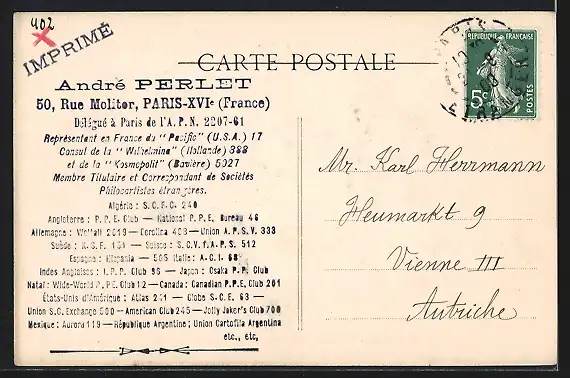 402
IMPRIMÉ
CARTE POSTALE
André PERLET
50, Rue Molitor, PARIS-XVIe (France)
Délégué à Paris de l'A.P.N. 2207-61
Représentant en France du "Pacific" (U.S.A.) 17
Consul de la "Wilhelmina" (Hollande) 388
et de la "Kosmopolit" (Bavière) 5027
Membre Titulaire et Correspondant de Sociétés
Philocartistes étrangères.
Algérie : S.C.F.C. 240
Angleterre : P.P.E. Club — National P.P.E. Bureau 46
Allemagne : Weltall 2019 — Carolina 408 — Union A.P.S.V. 333
Suède : K.S.F. 134 — Suisse : S.C.V.f.A.P.S. 512
Espagne : Hispania — 565 Italie : A.C.I. 68
Indes Anglaises : I.P.P. Club 96 — Japon : Osaka P.P. Club
Natal : Wide-World P.P.E. Club 12 — Canada : Canadian P.P.E. Club 201
États-Unis d'Amérique : Atlas 241 — Globe S.C.E. 63 —
Union S.C. Exchange 500 — American Club 245 — Jolly Joker's Club 700
Mexique : Aurora 119 — République Argentine ; Union Cartofila Argentina
etc., etc,
RÉPUBLIQUE FRANÇAISE
5c
POSTES
PARIS
ETRANGER
Mr. Karl Herrmann
Heumarkt 9
Vienne III
Autriche